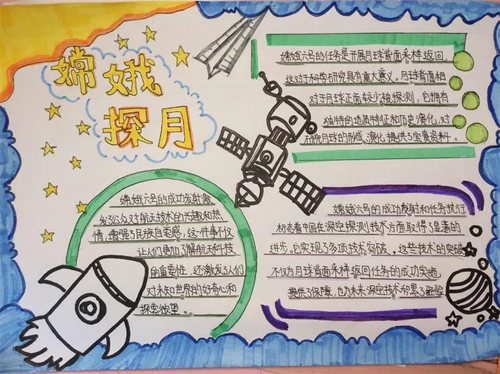 嫦娥
探月
嫦娥六号的任务是开展月球背面采样返回,
这对于科学研究具有重大意义。月球背面相
对于月球正面较少被探测,它拥有
独特的地质特征和历史演化,对
月球的形成、演化提供了宝贵资料。
嫦娥六号的成功发射激
发公众对航天技术的兴趣和热
情,增强了民族自豪感。这一事件仅
让人们更加了解航天科技
的重要性,还激发人们
对未知世界的好奇心和
探索欲望。
嫦娥六号的成功发射和任务执行
标志着中国在深空探测技术方面取得了显著的
进步,它实现了多项技术突破,这些技术的突破
不仅为月球背面采样返回任务的成功实施
提供了保障,也为未来深空技术积累了经验